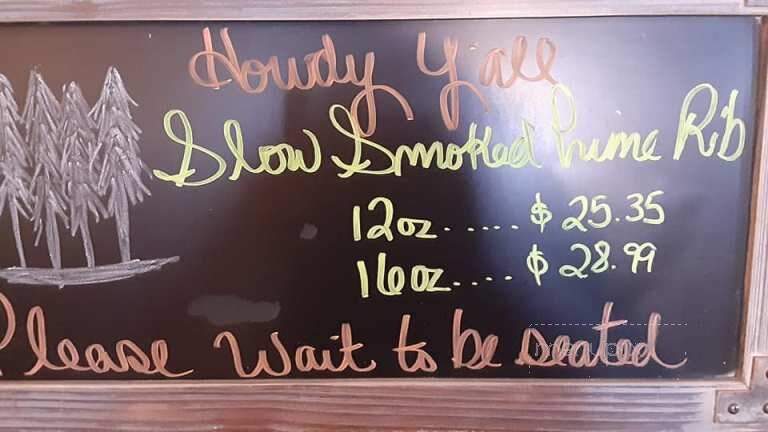 Howdy Y'all
Slow Smoked Prime Rib
12oz ..... $ 25.35
16oz ..... $ 28.99
Please Wait to be seated